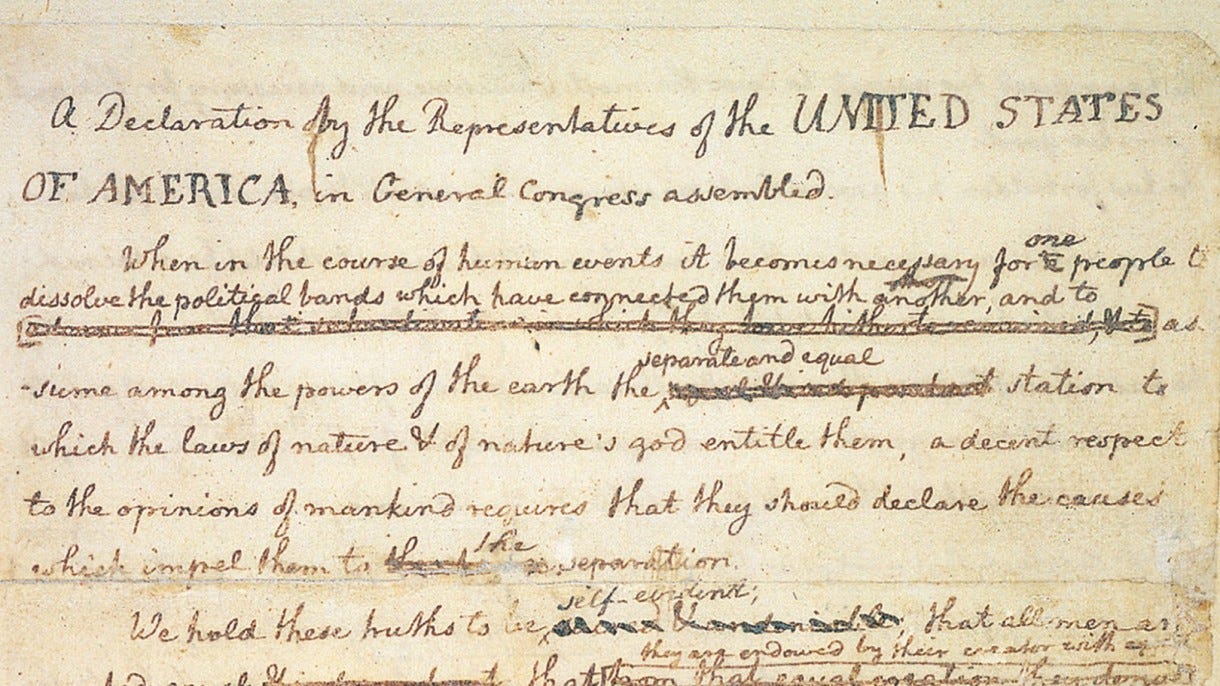 A Declaration by the Representatives of the UNITED STATES
OF AMERICA, in General Congress assembled.
one
When in the course of human events it becomes necessary for people t
dissolve the political bands which have connected them with another, and to
as
separate and equal
-sume among the powers of the earth the station to
which the laws of nature & of nature's god entitle them, a decent respect
to the opinions of mankind requires that they should declare the causes
the
which impel them to separation.
self-evident;
We hold these truths to be sacred & undeniable, that all men ar
they are endowed by their creator with
that from that equal creation they